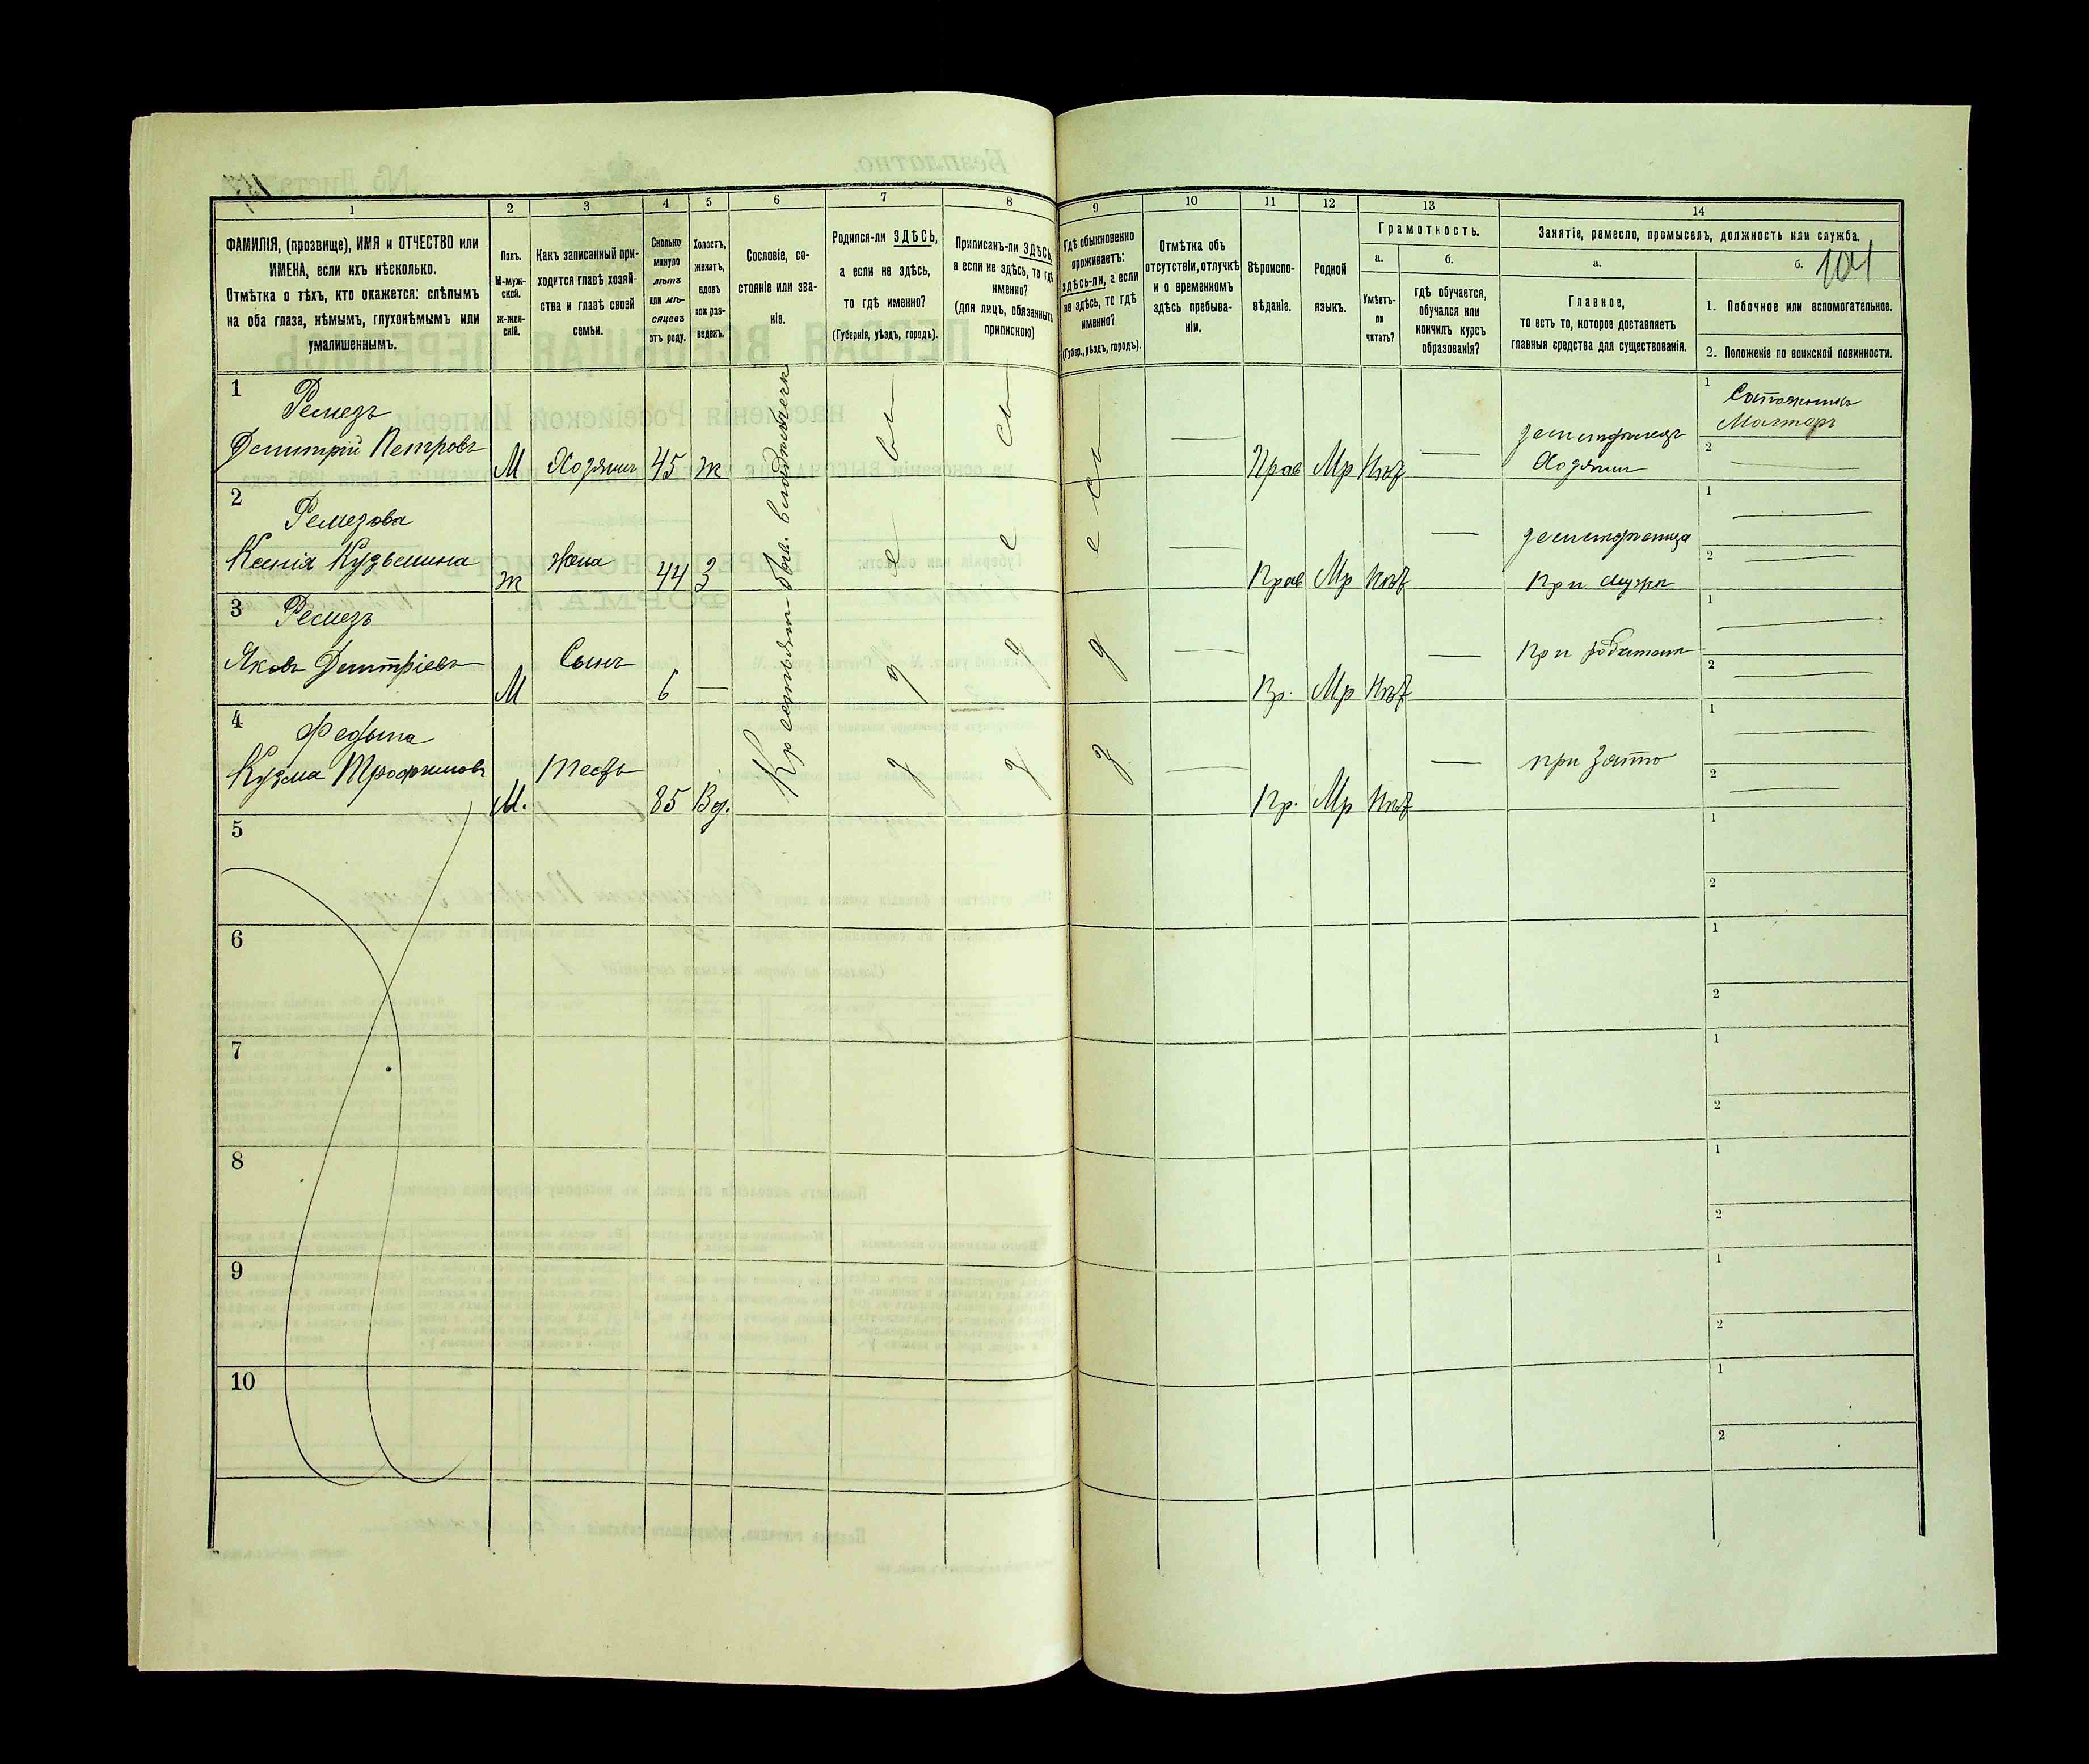 1 2 3 4 5 6 7 8 9 10 11 12 13 14
ФАМИЛІЯ, (прозвище), ИМЯ и ОТЧЕСТВО или
ИМЕНА, если ихъ нѣсколько.
Отмѣтка о тѣхъ, кто окажется: слѣпымъ
на оба глаза, нѣмымъ, глухонѣмымъ или
умалишеннымъ.
Полъ.
М-муж-
ской.
ж-жен-
скій.
Какъ записанный при-
ходится главѣ хозяй-
ства и главѣ своей
семьи.
Сколько
минуло
лѣтъ
или мѣ-
сяцевъ
отъ роду.
Холостъ,
женатъ,
вдовъ
или раз-
веденъ.
Сословіе, со-
стояніе или зва-
ніе.
Родился-ли ЗДѢСЬ,
а если не здѣсь,
то гдѣ именно?
(Губернія, уѣздъ, городъ).
Приписанъ-ли ЗДѢСЬ,
а если не здѣсь, то гдѣ
именно?
(для лицъ, обязанныхъ
припискою)
Гдѣ обыкновенно
проживаетъ:
здѣсь-ли, а если
не здѣсь, то гдѣ
именно?
(Губер., уѣздъ, городъ).
Отмѣтка объ
отсутствіи, отлучкѣ
и о временномъ
здѣсь пребыва-
ніи.
Вѣроиспо-
вѣданіе.
Родной
языкъ.
Грамотность.
а.
Умѣетъ-
ли
читать?
б.
гдѣ обучается,
обучался или
кончилъ курсъ
образованія?
Занятіе, ремесло, промыселъ, должность или служба.
а.
Главное,
то есть то, которое доставляетъ
главныя средства для существованія.
б. 101
1. Побочное или вспомогательное.
2. Положеніе по воинской повинности.
1 Ремезъ
Дмитрій Петровъ М Хозяинъ 45 ж Прав Мр Нѣт — земледѣлецъ
Хозяинъ
1 Сапожникъ
Мастеръ
2 —
2 Ремезова
Ксенія Кузьмина ж Жена 44 З — Прав Мр Нѣт — При мужѣ
1 —
2 —
3 Ремезъ
Яковъ Дмитріевъ М Сынъ 6 — — Пр. Мр Нѣт —
1 —
2 —
4 Федына
Кузма Трофимовъ М. Тесть 85 Вд. — Пр. Мр Нѣт — при Зятѣ
1 —
2 —
5
1
2
6
1
2
7
1
2
8
1
2
9
1
2
10
1
2